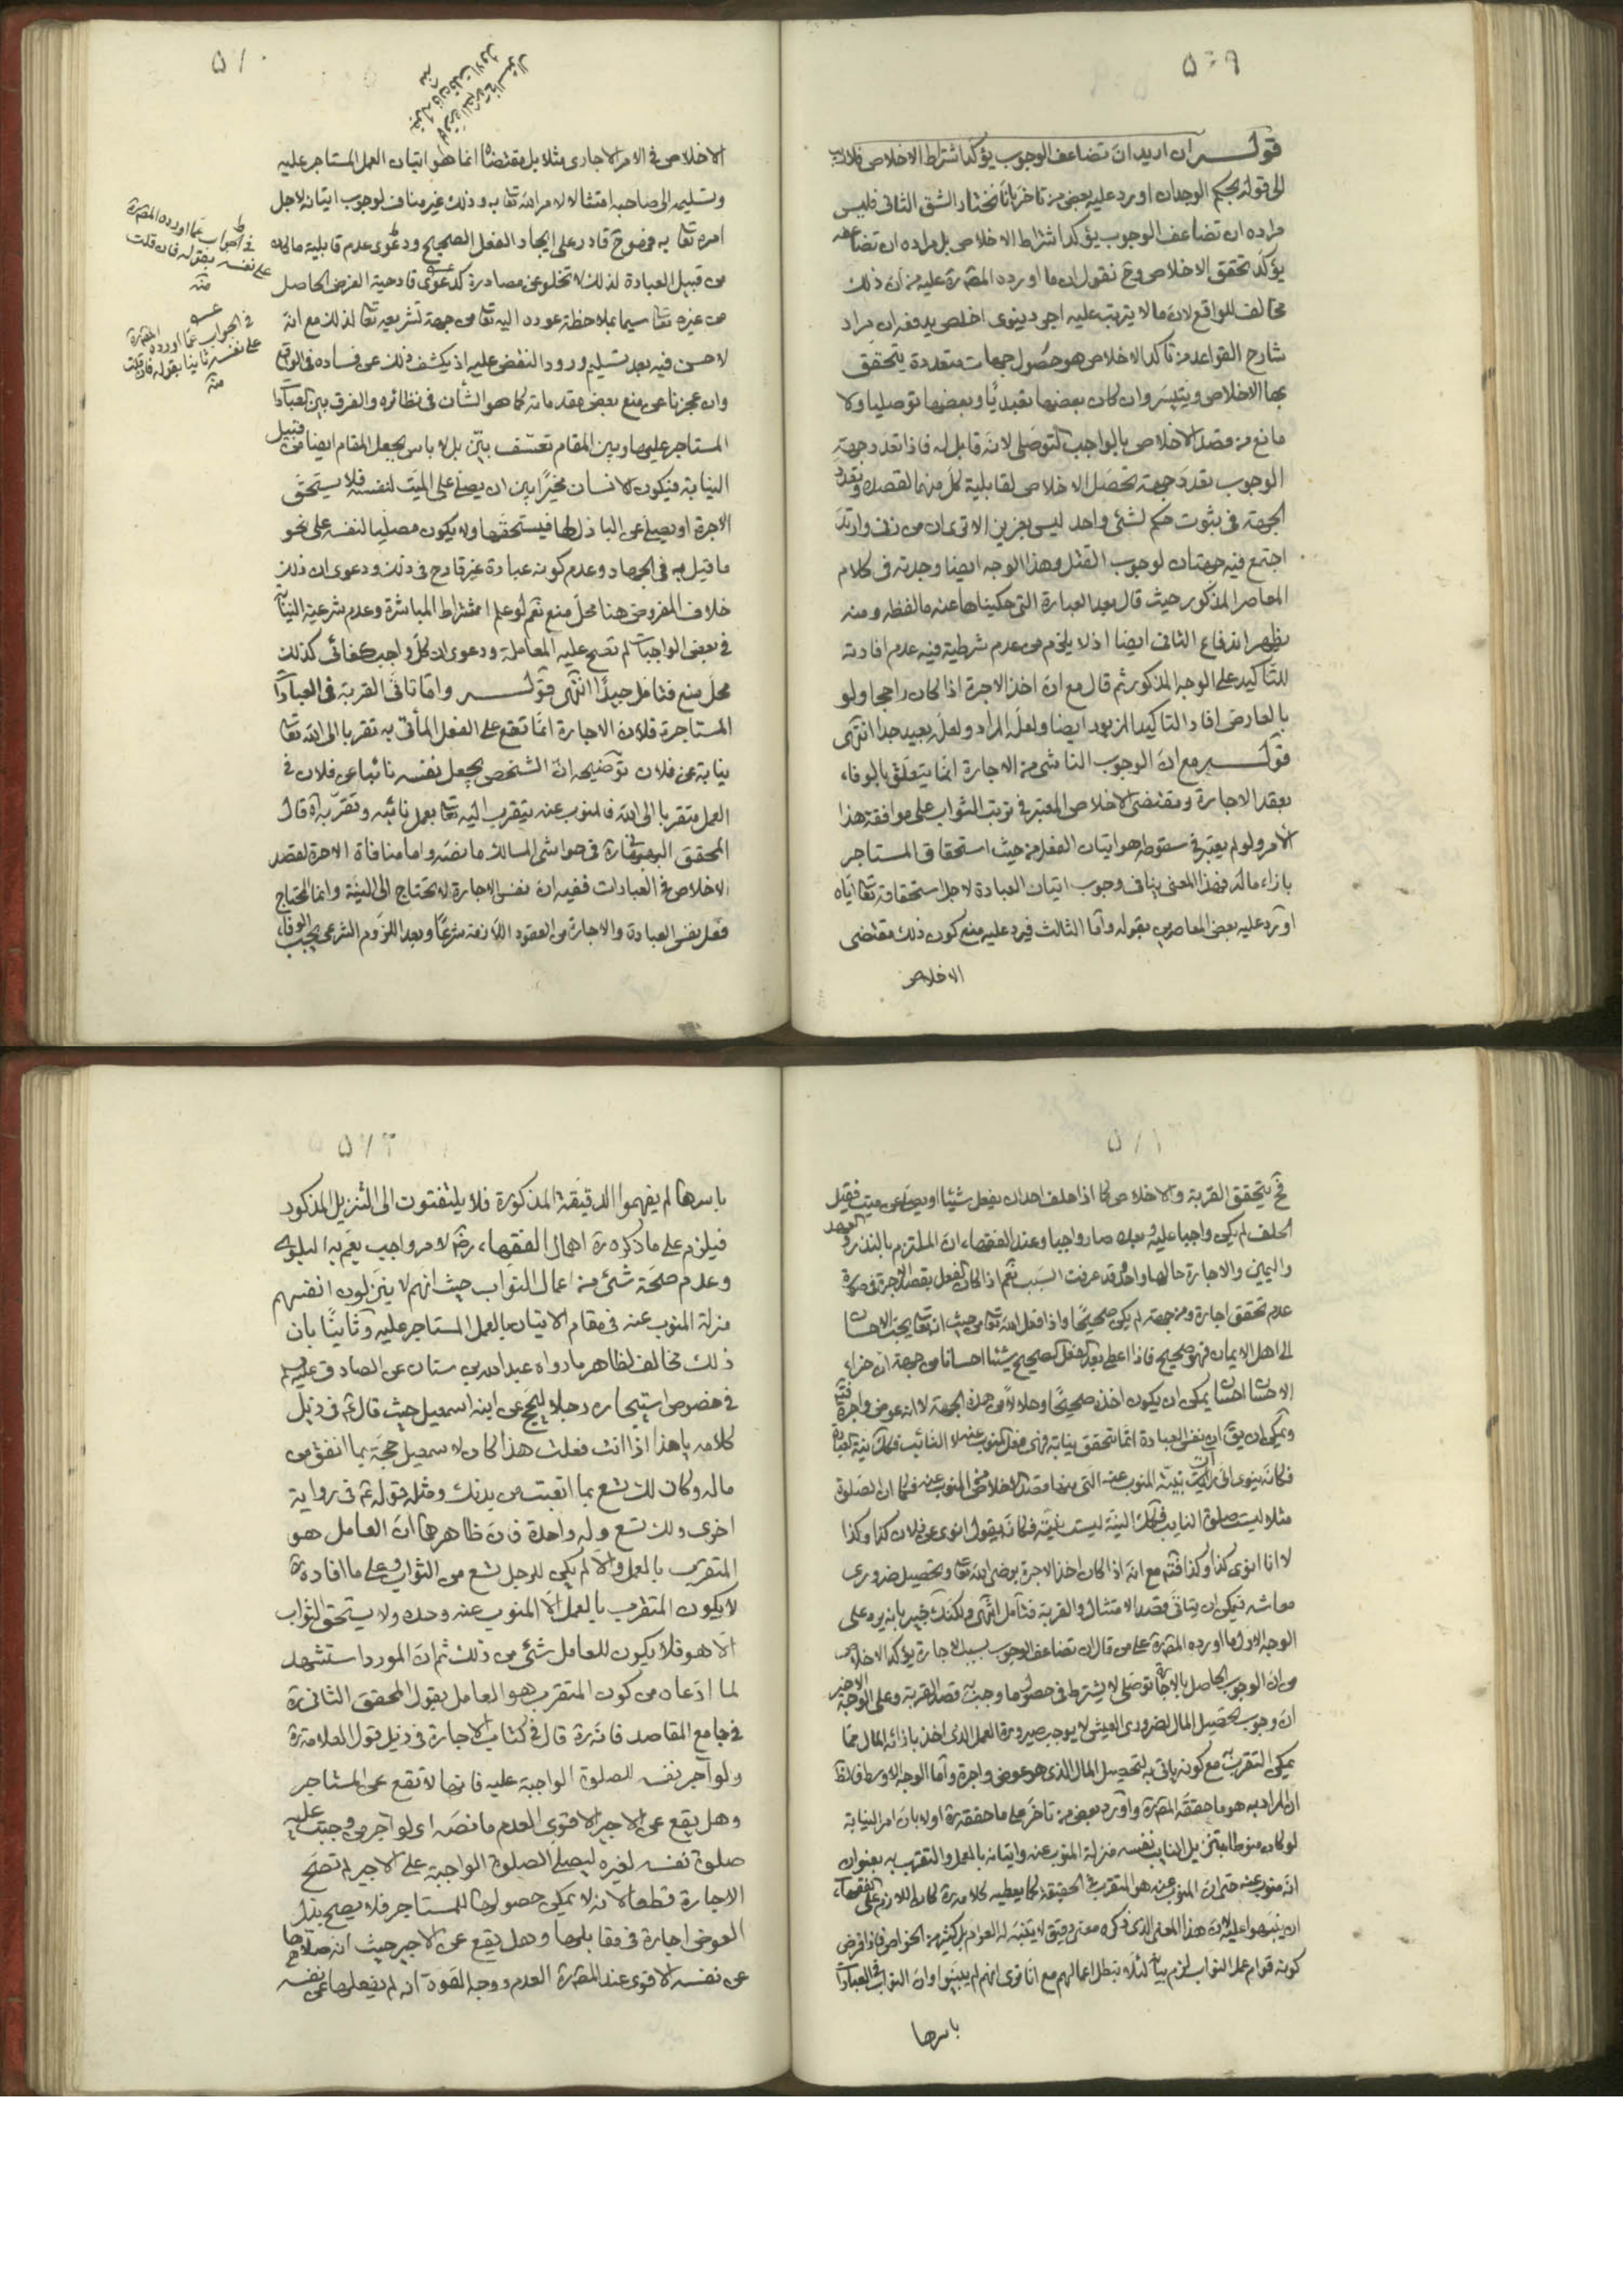 ٥٠٩
قوله ان اريد ان تضاعف الوجوب يؤكد اشتراط الاخلاص فلا ريب
الى قوله بحكم الوجدان اورد عليه بعض من تأخر بانا نختار الشق الثانى فليس
مراده ان تضاعف الوجوب يؤكد اشتراط الاخلاص بل مراده ان تضاعفه
يؤكد تحقق الاخلاص وح نقول ان ما اورده المصره عليه من ان ذلك
مخالف للواقع لان ما لا يترتب عليه اجر دينوى اخلص يدفعه ان مراد
شارح القواعد من تأكد الاخلاص هو حصول جهات متعددة يتحقق
بها الاخلاص ويتيسر وان كان بعضها تعبديا وبعضها توصليا ولا
مانع من قصد الاخلاص بالواجب التوصلى لانه قابل له فاذا تعدد جهة
الوجوب تعدد جهة تحصل الاخلاص لقابلية كل منهما لقصده وتعدد
الجهة فى ثبوت حكم لشئ واحد ليس بعزيز الا ترى ان من زنى وارتد
اجتمع فيه جهتان لوجوب القتل وهذا الوجه ايضا وجدته فى كلام
المعاصر المذكور حيث قال بعد العبارة التى حكيناها عنه ما لفظه ومنه
يظهر اندفاع الثانى ايضا اذ لا يلزم من عدم شرطية فيه عدم افادته
للتاكيد على الوجه المذكور ثم قال مع ان اخذ الاجرة اذا كان راجحا ولو
بالعارض افاد التاكيد المزبور ايضا ولعله المراد ولعله بعيد جدا انتهى
قوله مع ان الوجوب الناشى من الاجارة انما يتعلق بالوفاء
بعقد الاجارة ومقتضى الاخلاص المعتبر فى ترتب الثواب على موافقة هذا
الامر ولو لم يعتبر فى سقوطه هو اتيان الفعل من حيث استحقاق المستاجر
بازاء ماله فهذا المعنى ينافى وجوب اتيان العبادة لاجل استحقاقه تعا اياه
اورد عليه بعض المعاصرين بقوله واما الثالث فيرد عليه منع كون ذلك مقتضى
الاخلاص
٥١٠
الاخلاص فى الامر الاجارى مثلا بل مقتضاه انما هو اتيان العمل المستاجر عليه
وتسليمه الى صاحبه امتثالا لامر الله تعا به وذلك غير مناف لوجوب اتيانه لاجل
امره تعا به فوضوح قادر على ايجاد الفعل الصحيح ودعوى عدم قابلية ما كان
من قبيل العبادة لذلك لا تخلو عن مصادرة كدعوى قادحية الغرض الحاصل
من غيره تعا سيما بملاحظة عوده اليه تعا من جهة تشريعه تعا لذلك مع انه
لا حسن فيه بعد تسليم ورود النقض عليه اذ يكشف ذلك عن فساده فى الواقع
وان عجزنا عن منع بعض مقدماته كما هو الشأن فى نظائره والفرق بين العبادات
المستاجر عليها وبين المقام تعسف بيّن بل لا باس بجعل المقام ايضا من قبيل
النيابة فيكون الانسان مخيرا بين ان يصلى على الميت لنفسه فلا يستحق
الاجرة او يصلى عن الباذل لها فيستحقها ولا يكون مصليا لنفسه على نحو
ما قيل به فى الجهاد وعدم كونه عبادة غير قادح فى ذلك ودعوى ان ذلك
خلاف المفروض هنا محل منع نعم لو علم اشتراط المباشرة وعدم شرعية النيابة
فى بعض الواجبات لم تصح عليه المعاملة ودعوى ان كل واجب كفائى كذلك
محل منع فتامل جيدا انتهى قوله واما تاتى القربة فى العبادات
المستاجرة فلان الاجارة انما تقع على الفعل المأتى به تقربا الى الله تعا
نيابة عن فلان توضيحه ان الشخص يجعل نفسه نائبا عن فلان فى
العمل متقربا الى الله فالمنوب عنه يتقرب اليه تعا بعمل نائبه وتقربه اه قال
المحقق البهبهانى ره فى حواشى المسالك ما نصه واما منافاة الاجرة لقصد
الاخلاص فى العبادات ففيه ان نفس الاجارة لا تحتاج الى النية وانما المحتاج
فعل نفس العبادة والاجارة من العقود اللازمة شرعا وبعد اللزوم الشرعى يجب الوفاء
فى الجواب عما اورده المصره
على نفسه بقوله فان قلت
منه
فى الجواب عما اورده المصره
على نفسه ثانيا بقوله فان قلت
منه
٥١١
فح يتحقق القربة والاخلاص كما اذا حلف احد ان يفعل شيئا او يصلى عن ميت فقبل
الحلف لم يكن واجبا عليه وبعده صار واجبا وعند الفقهاء ان الملتزم بالنذر والعهد
واليمين والاجارة حالها واحد وقد عرفت السبب نعم اذا كان الفعل بقصد الاجرة فى صورة
عدم تحقق اجارة ومن جهته لم يكن صحيحا واذا فعل لله تعا من حيث انه تعا يحب الاحسان
الى اهل الايمان فهو صحيح فاذا اعطى بعد الفعل الصحيح شيئا احسانا من جهة ان جزاء
الاحسان احسان يمكن ان يكون اخذه صحيحا وحلالا من هذه الجهة لا انه عوض واجرة فتدبر
ويمكن ان يق ان نفس العبادة انما تتحقق بنيابة فهى فعل المنوب عنه لا النائب فكذلك نية العبادة
فكانه ينوى انى اتيت بنية المنوب عنه التى هى قصد الاخلاص من المنوب عنه فكما ان الصلوة
مثلا ليست صلوة النايب فكذلك النية ليست نيته فكانه يقول انوى عن فلان كذا وكذا
لا انا انوى كذا وكذا فتدبر مع انه اذا كان اخذ الاجرة برضى الله تعا وتحصيل ضرورى
معاشه فيمكن ان يتاتى قصد الامتثال والقربة فتأمل انتهى ولكنك خبير بانه يرد على
الوجه الاول ما اورده المصره على من قال ان تضاعف الوجوب بسبب الاجارة يؤكد الاخلاص
من ان الوجوب الحاصل بالاجارة توصلى لا يشترط فى حصول ما وجب به قصد القربة وعلى الوجه الاخير
ان وجوب تحصيل المال لضرورى العيش لا يوجب صيرورة العمل الذى اخذ بازائه المال مما
يمكن التقرب به مع كونه ياتى به لتحصيل المال الذى هو عوض واجرة واما الوجه الاوسط فالظ
ان المراد به هو ما حققه المصره واورد بعض من تاخر على ما حققه ره اولا بان امر النيابة
لو كان منوطا بتنزيل النايب نفسه منزلة المنوب عنه واتيانه بالعمل والتقرب به بعنوان
انه منوب عنه حتى ان المنوب عنه هو المتقرب فى الحقيقة كما يعطيه كلامه ره كان اللازم على الفقهاء
ان ينبهوا عليه لان هذا المعنى الذى ذكره معنى دقيق لا يتنبه له العوام بل كثير من الخواص فاذا فرض
كونه قوام عمل النواب لزم بيانه لئلا تبطل اعمالهم مع انا نرى انهم لم يبينوا وان النواب فى العبادات
باسرها
٥١٢
باسرها لم يفهموا الدقيقة المذكورة فلا يلتفتون الى التنزيل المذكور
فيلزم على ما ذكره ره اهمال الفقهاء رض لامر واجب يعم به البلوى
وعدم صحة شئ من اعمال النواب حيث انهم لا ينزلون انفسهم
منزلة المنوب عنه فى مقام الاتيان بالعمل المستاجر عليه وثانيا بان
ذلك مخالف لظاهر ما رواه عبدالله بن سنان عن الصادق عليه السلم
فى خصوص استيجاره رجلا ليحج عن ابنه اسمعيل حيث قال ع فى ذيل
كلامه يا هذا اذا انت فعلت هذا كان لاسمعيل حجة بما انفق من
ماله وكان لك تسع بما اتعبت من بدنك ومثله قوله ع فى رواية
اخرى ولك تسع وله واحدة فان ظاهرها ان العامل هو
المتقرب بالعمل والا لم يكن للرجل تسع من الثواب وعلى ما افاده ره
لا يكون المتقرب بالعمل الا المنوب عنه وحده ولا يستحق الثواب
الا هو فلا يكون للعامل شئ من ذلك ثم ان المورد استشهد
لما ادعاه من كون المتقرب هو العامل بقول المحقق الثانى ره
فى جامع المقاصد فانه ره قال فى كتاب الاجارة فى ذيل قول العلامة ره
ولو آجر نفسه للصلوة الواجبة عليه فانها لا تقع عن المستاجر
وهل يقع عن الاجير الاقوى العدم ما نصه اى لو آجر من وجبت عليه
صلوة نفسه لغيره ليصلى الصلوة الواجبة على الاجير لم تصح
الاجارة قطعا لانه لا يمكن حصولها للمستاجر فلا يصح بذل
العوض اجارة فى مقابلها وهل يقع عن الاجير حيث انه صلاها
عن نفسه الاقوى عند المصره العدم ووجه القوة انه لم يفعلها عن نفسه